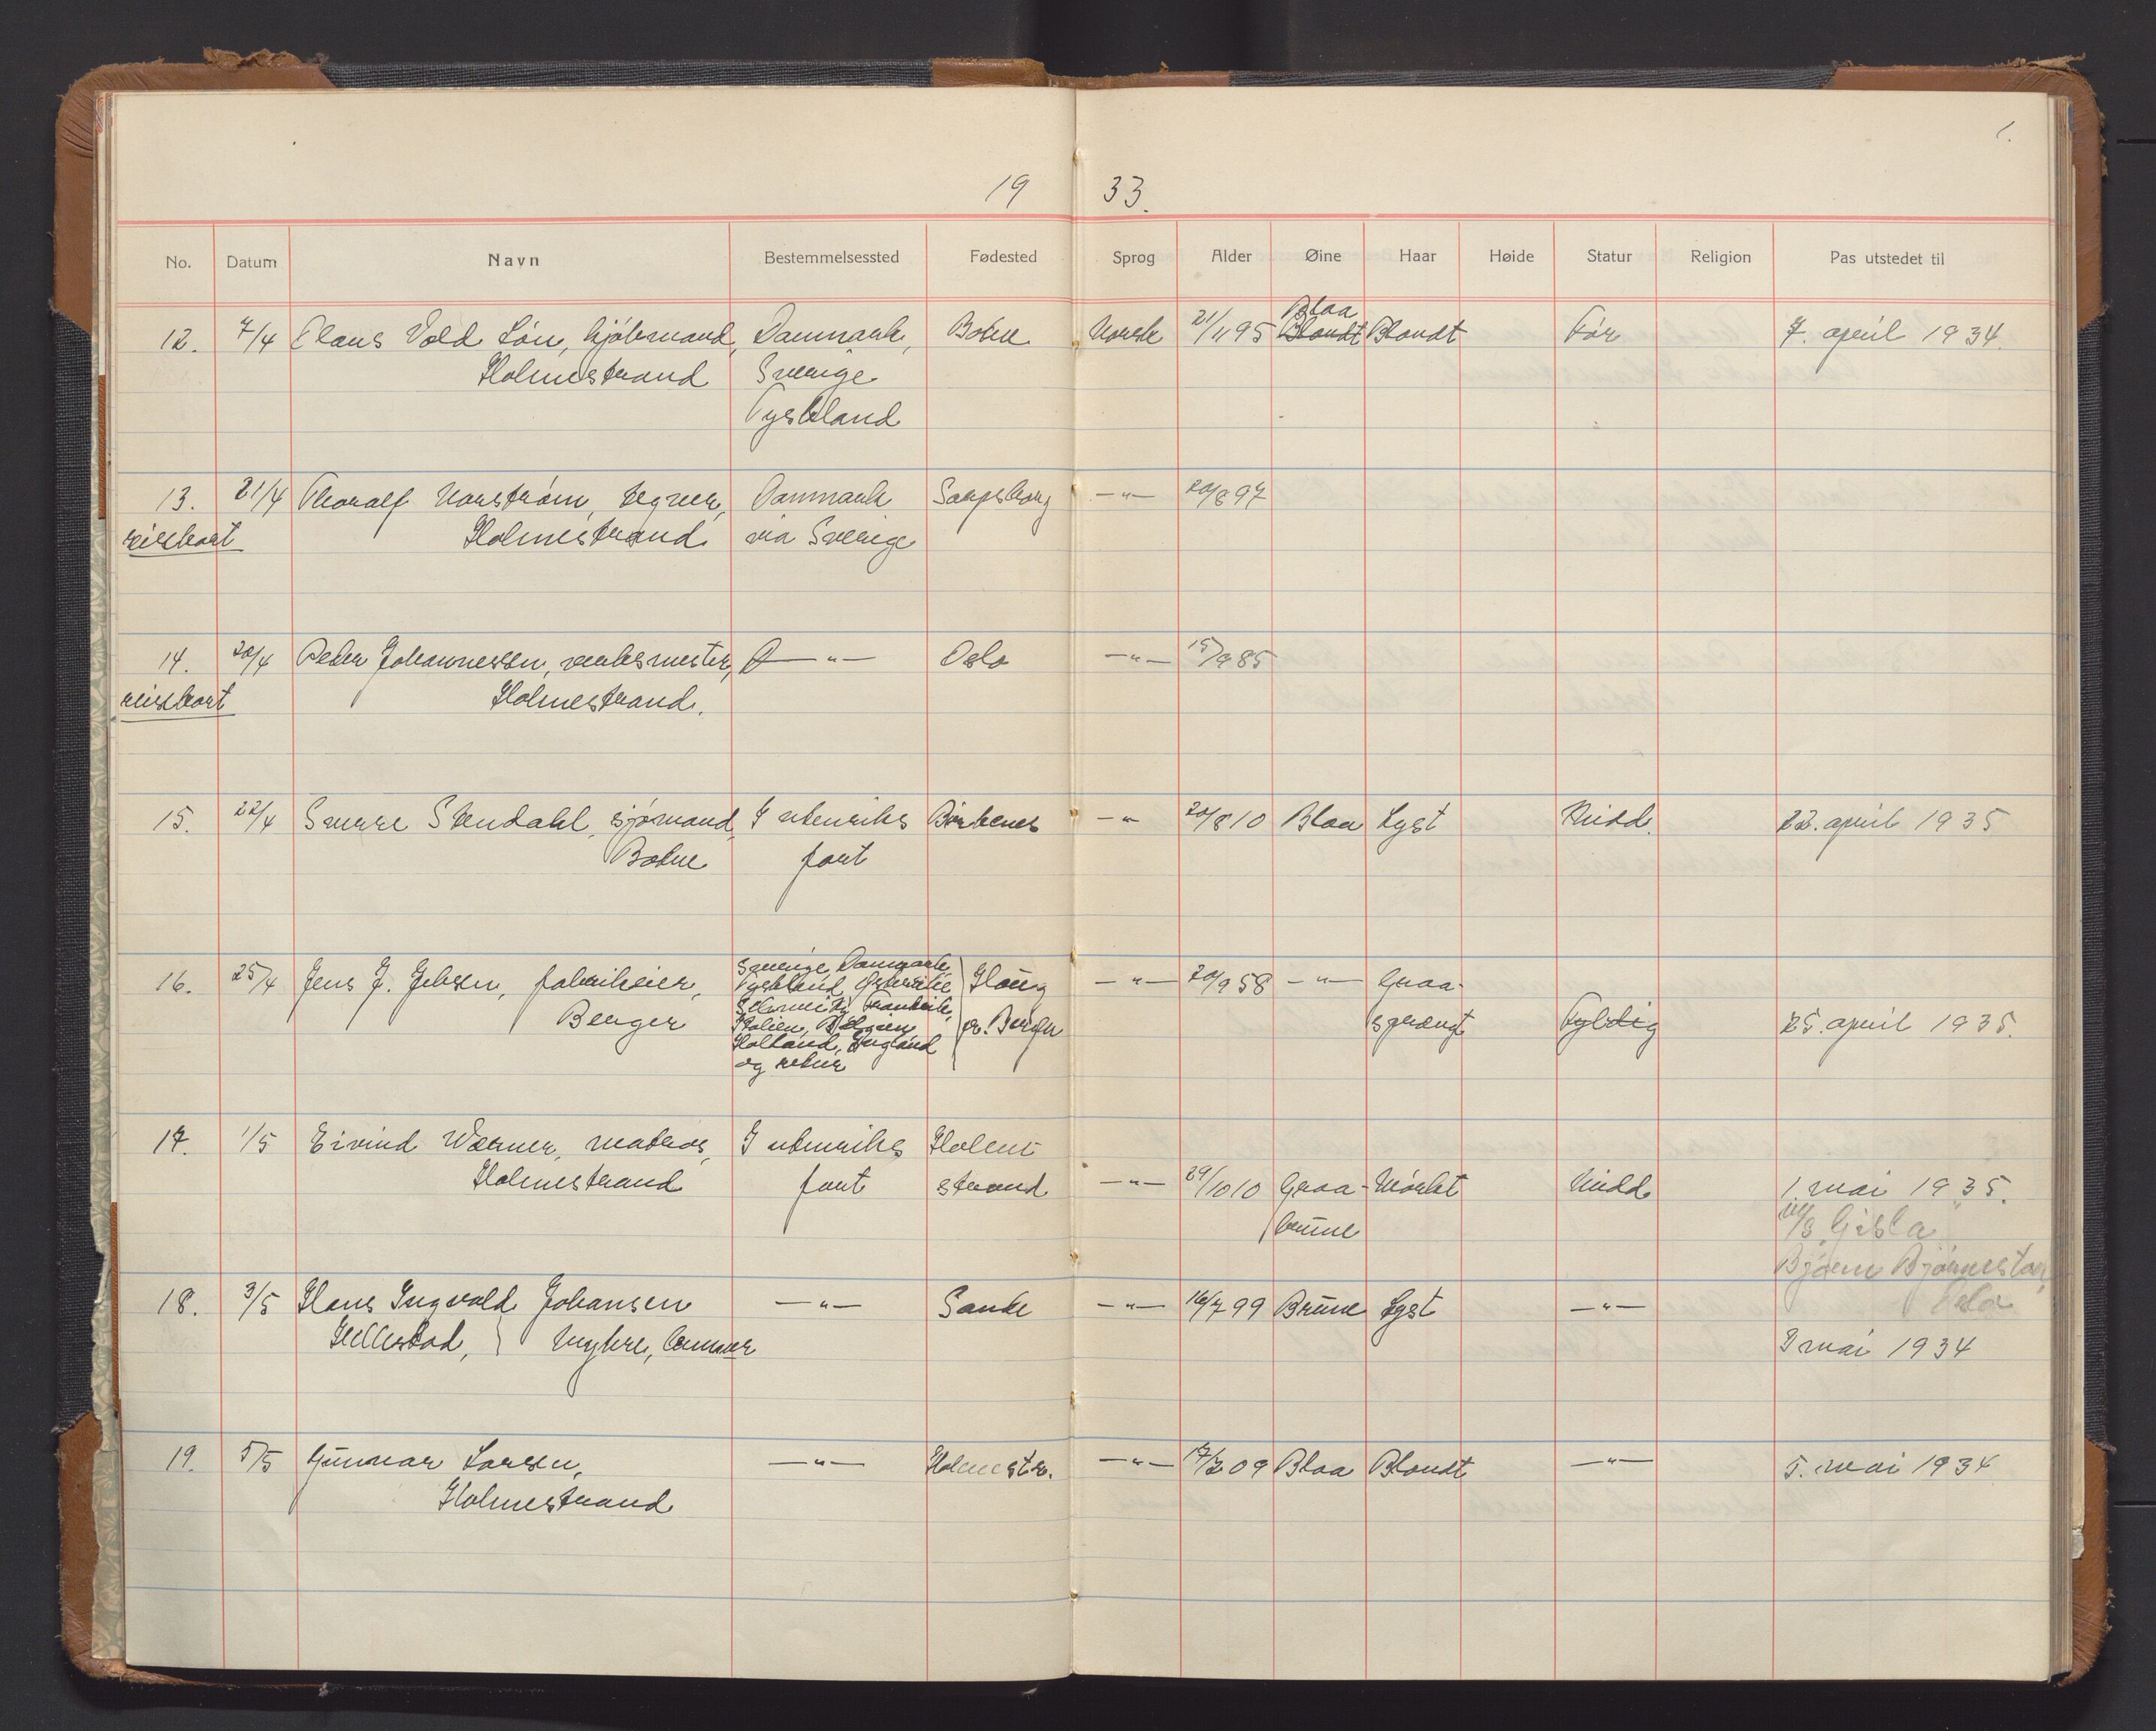 1.
19 33.
No. Datum Navn Bestemmelsessted Fødested Sprog Alder Øine Haar Høide Statur Religion Pas utstedet til
Blaa
12. 7/4 Claus Vold Løn, kjøbmand, Danmark, Botne Norsk 21/11 95 Blondt Blondt Før 7. april 1934.
Holmestrand Sverige
Tyskland
13. 21/4 Thoralf Norstrøm, tegner, Danmark Sarpsborg —"— 20/8 97
reisekort Holmestrand via Sverige
14. 20/4 Peder Johannessen, verksmester, D —"— Oslo —"— 15/9 85
reisekort Holmestrand.
15. 22/4 Sverre Stendahl, sjømand, I utenriks Birkenes —"— 20/8 10 Blaa Lyst Midd. 22. april 1935
Botne fart
16. 25/4 Jens J. Jebsen, fabrikeier, Sverige, Danmark, Houg —"— 20/9 58 —"— Graa-
Tyskland, Østerrike
Berger Schweitz, Frankrike, pr. Bergen sprængt Fyldig 25. april 1935.
Italien, Belgien
Holland, England
og retur
17. 1/5 Eivind Werner, matros, I utenriks Holme-
Holmestrand fart strand —"— 29/10 10 Graa- Mørkt Midd 1. mai 1935.
brune M/S Gisla
Bjørn Bjørnestad
18. 3/5 Hans Ingvald Johansen —"— Sande —"— 16/7 99 Brune Lyst —"— Oslo
Hillestad, Nykre, 3 mai 1934
19. 5/5 Gunnar Larsen, —"— Holmestr. —"— 17/2 09 Blaa Blondt —"— 5. mai 1934
Holmestrand